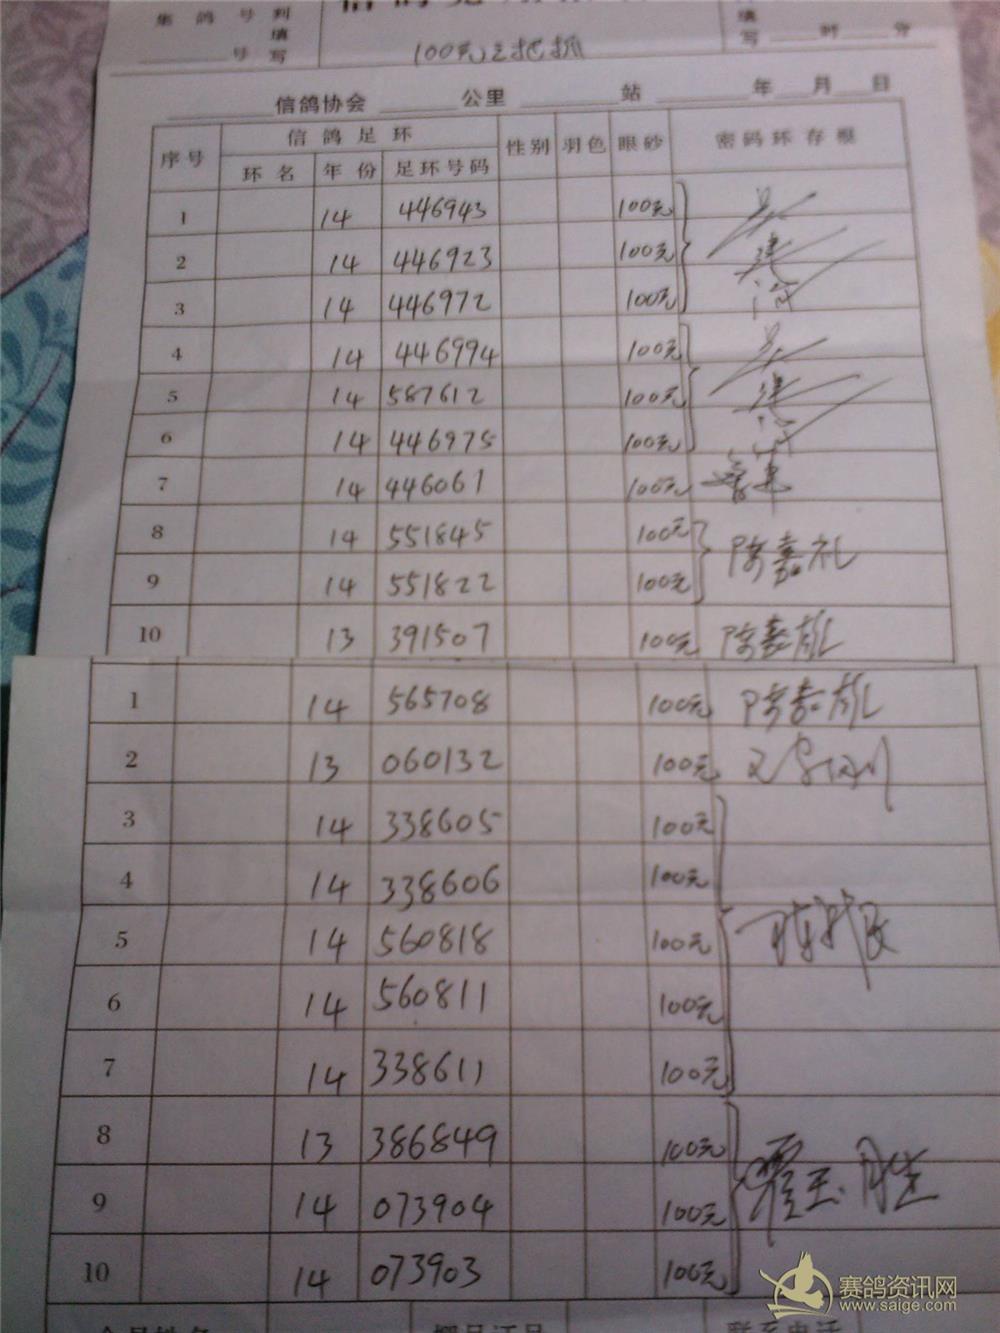 集 鸽 号 判
填
号 写
填
写 时 分
100元之把抓
信鸽协会 公里 站 年 月 日
序号 信鸽足环 性别 羽色 眼砂 密码环存根
环名 年份 足环号码
1 14 446943 100元
2 14 446923 100元
3 14 446972 100元
4 14 446994 100元
5 14 587612 100元
6 14 446975 100元
7 14 446061 100元
8 14 551845 100元 陈嘉礼
9 14 551822 100元
10 13 391507 100元 陈嘉雄
1 14 565708 100元 陈嘉雄
2 13 060132 100元
3 14 338605 100元
4 14 338606 100元
5 14 560818 100元
6 14 560811 100元
7 14 338611 100元
8 13 386849 100元
9 14 073904 100元
10 14 073903 100元
赛鸽资讯网
www.saige.com